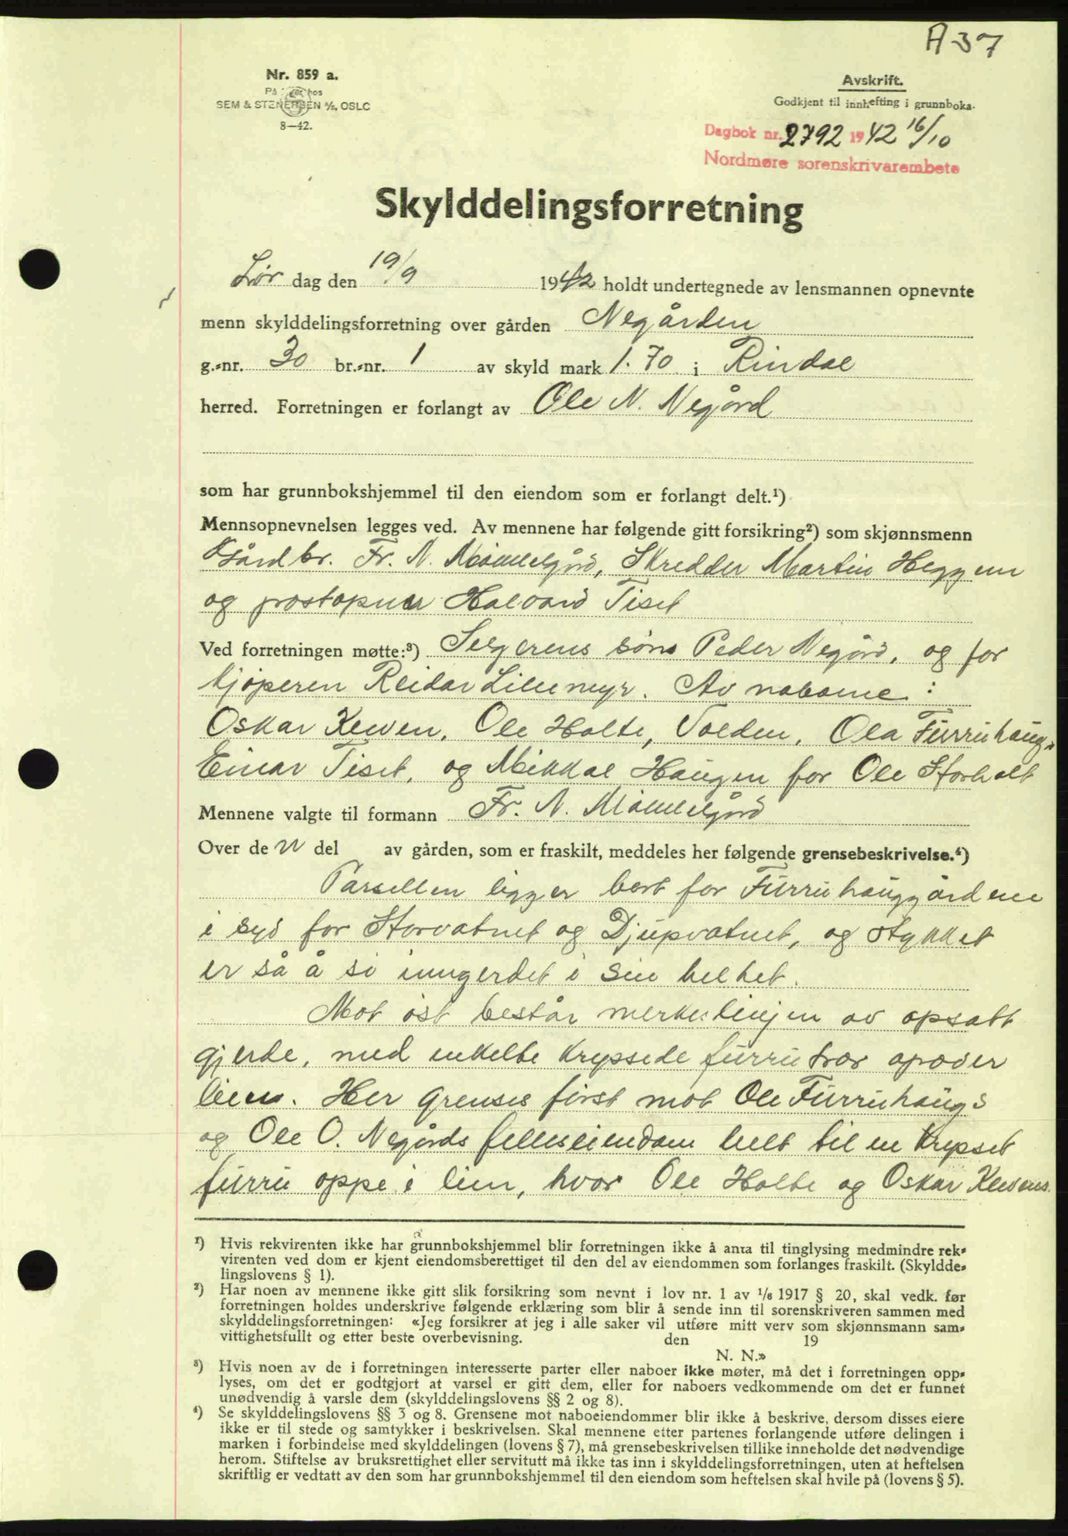 A 37
Nr. 859 a.
På lager hos
SEM & STENERSEN A/S, OSLO
8—42.
Avskrift.
Godkjent til innhefting i grunnboka.
Dagbok nr. 2792 1942 16/10
Nordmøre sorenskrivarembete
Skylddelingsforretning
Lør dag den 19/9 1942 holdt undertegnede av lensmannen opnevnte
menn skylddelingsforretning over gården Negården
g.-nr. 30 br.-nr. 1 av skyld mark 1.70 i Rindal
herred. Forretningen er forlangt av Ole N. Negård
som har grunnbokshjemmel til den eiendom som er forlangt delt.¹)
Mennsopnevnelsen legges ved. Av mennene har følgende gitt forsikring²) som skjønnsmenn
Gårdbr. Fr. N. Mikkelgård, Skredder Martin Heggem
og postopner Halvard Tiset
Ved forretningen møtte:³) Selgerens søns Peder Negård, og for
kjøperen Reidar Lillemyr. Av naboene:
Oskar Kleven, Ole Holte, Volden, Ola Furruhaug,
Einar Tiset, og Mikkal Haugen for Ole Storholt
Mennene valgte til formann Fr. N. Mikkelgård
Over de n del av gården, som er fraskilt, meddeles her følgende grensebeskrivelse.⁴)
Parsellen ligger bort for Furruhauggårdene
i syd for Storvatnet og Djupvatnet, og stykket
er så å si inngerdet i sin helhet.
Mot øst består merkelinjen av opsatt
gjerde, med enkelte kryssede furrutrær opover
lien. Her grenses først mot Ole Furruhaugs
og Ole O. Negårds felleseiendom helt til en krysset
furru oppe i lien, hvor Ole Holte og Oskar Klevens
¹) Hvis rekvirenten ikke har grunnbokshjemmel blir forretningen ikke å anta til tinglysing medmindre rek-
virenten ved dom er kjent eiendomsberettiget til den del av eiendommen som forlanges fraskilt. (Skyldde-
lingslovens § 1).
²) Har noen av mennene ikke gitt slik forsikring som nevnt i lov nr. 1 av 1/6 1917 § 20, skal vedk. før
forretningen holdes underskrive følgende erklæring som blir å sende inn til sorenskriveren sammen med
skylddelingsforretningen: «Jeg forsikrer at jeg i alle saker vil utføre mitt verv som skjønnsmann sam-
vittighetsfullt og etter beste overbevisning. den 19
N. N.»
³) Hvis noen av de i forretningen interesserte parter eller naboer ikke møter, må det i forretningen opp-
lyses, om det er godtgjort at varsel er gitt dem, eller for naboers vedkommende om det er funnet
unødvendig å varsle dem (skylddelingslovens §§ 2 og 8).
⁴) Se skylddelingslovens §§ 3 og 8. Grensene mot naboeiendommer blir ikke å beskrive, dersom disses eiere
ikke er til stede og samtykker i beskrivelsen. Skal mennene etter partenes forlangende utføre delingen i
marken i forbindelse med skylddelingen (lovens § 7), må grensebeskrivelsen tillike inneholde det nødvendige
herom. Stiftelse av bruksrettighet eller servitutt må ikke tas inn i skylddelingsforretningen, uten at heftelsen
skriftlig er vedtatt av den som har grunnbokshjemmel til den eiendom som heftelsen skal hvile på (lovens § 5).